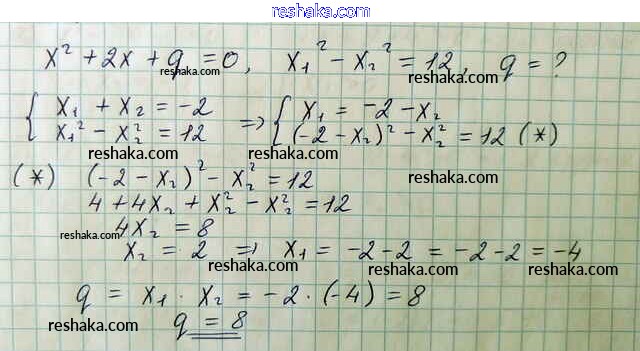 reshaka.com
x² + 2x + q = 0, x₁² - x₂² = 12, q = ?
reshaka.com reshaka.com
{ x₁ + x₂ = -2 => { x₁ = -2 - x₂
x₁² - x₂² = 12 (-2 - x₂)² - x₂² = 12 (*)
reshaka.com reshaka.com
(*) (-2 - x₂)² - x₂² = 12
reshaka.com
4 + 4x₂ + x₂² - x₂² = 12
4x₂ = 8
reshaka.com reshaka.com
x₂ = 2 => x₁ = -2-2 = -2-2 = -4
reshaka.com reshaka.com reshaka.com
q = x₁ · x₂ = -2 · (-4) = 8
reshaka.com reshaka.com
q = 8
reshaka.com